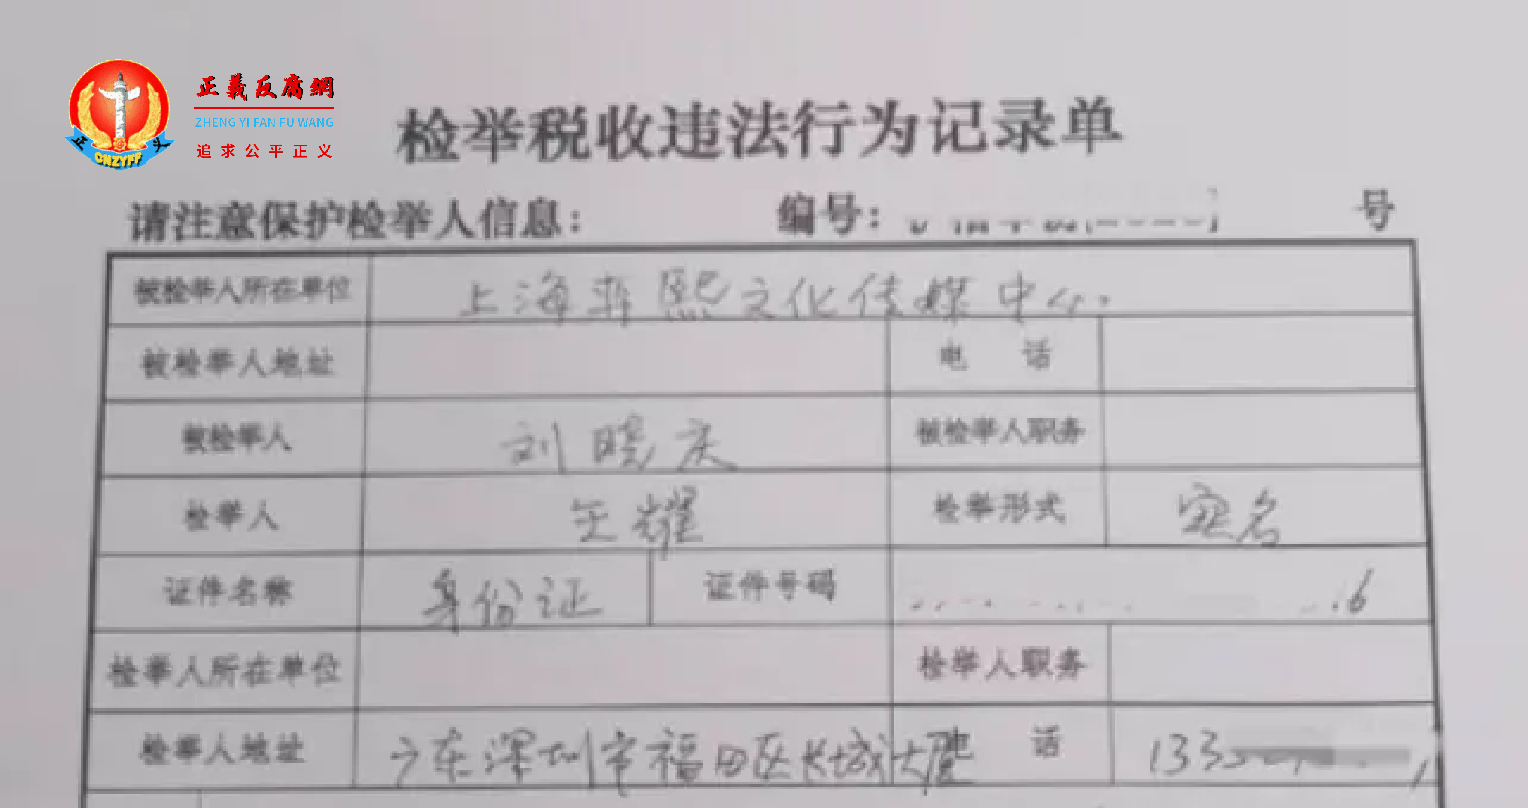 正義反腐網
ZHENG YI FAN FU WANG
追求公平正义
正 义
CNZYFF
检举税收违法行为记录单
请注意保护检举人信息： 编号： 号
被检举人所在单位 上海 熙文化传媒中心.
被检举人地址 电 话
被检举人 刘晓庆 被检举人职务
检举人 耀 检举形式 实名
证件名称 身份证 证件号码 6
检举人所在单位 检举人职务
检举人地址 广东深圳市福田区长城大厦 话 133